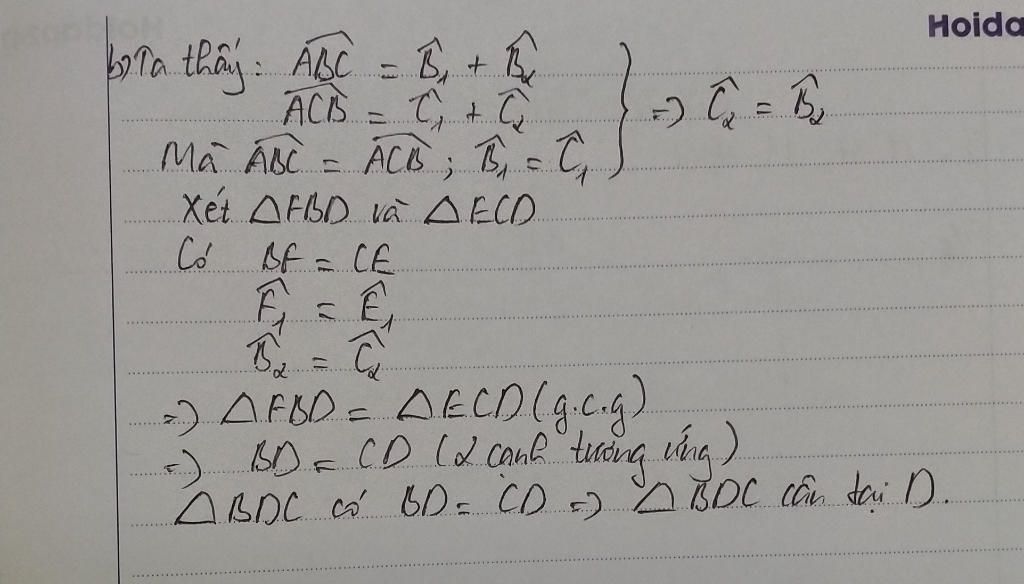 Hoida
b) Ta thấy: \widehat{ABC} = \widehat{B}₁ + \widehat{B}₂
\widehat{ACB} = \widehat{C}₁ + \widehat{C}₂
} => \widehat{C}₂ = \widehat{B}₂
Mà \widehat{ABC} = \widehat{ACB} ; \widehat{B}₁ = \widehat{C}₁
Xét △FBD và △ECD
Có BF = CE
\widehat{F}₁ = \widehat{E}₁
\widehat{B}₂ = \widehat{C}₂
=> △FBD = △ECD (g.c.g)
=> BD = CD (2 cạnh tương ứng)
△BDC có BD = CD => △BDC cân tại D.